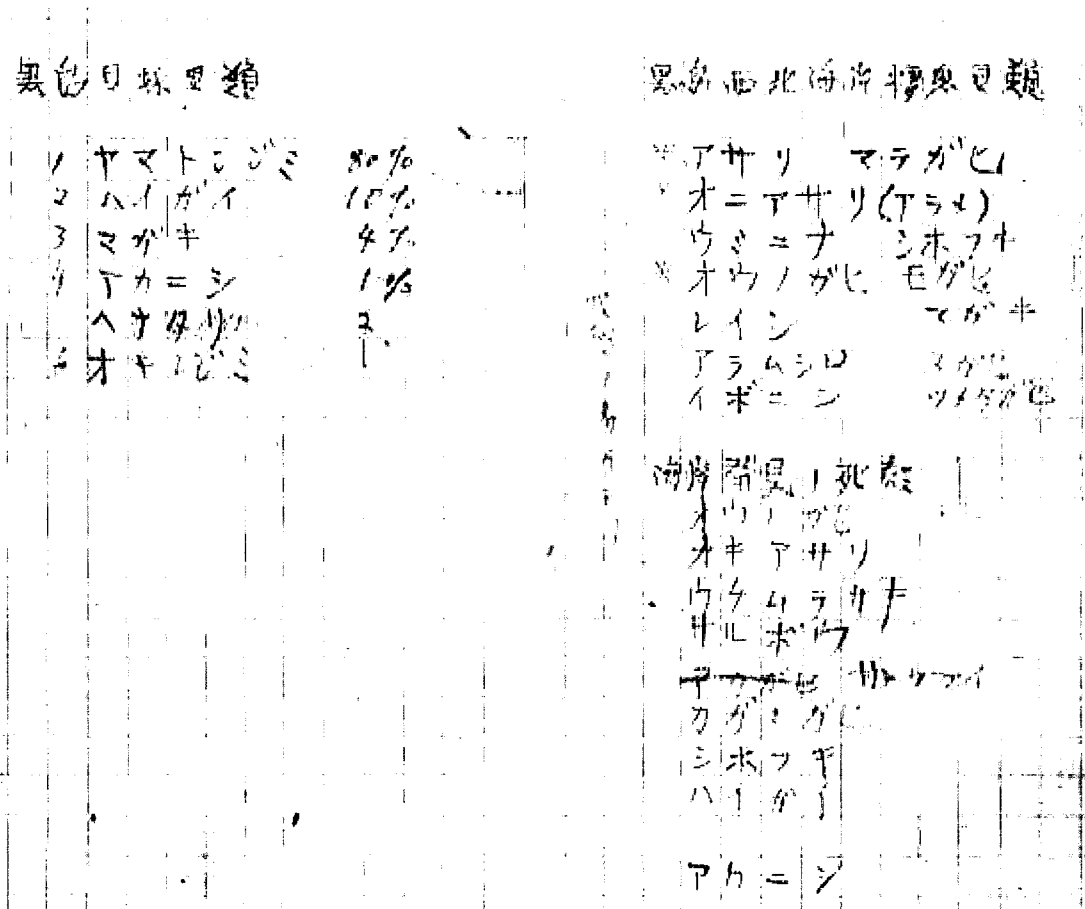 黒島貝塚貝類
1 ヤマトシジミ 80%
2 ハイガイ 10%
3 マガキ 4%
4 アカニシ 1%
ヘナタリ 2
オキシジミ 1
黒島西北海岸棲息貝類
アサリ マテガヒ
オニアサリ(アラメ)
ウミニナ シホフキ
オウノガヒ
レイシ マガキ
アラムシロ
イボニシ ツメタガヒ
海岸 貝ノ死殻
オウノガヒ
オキアサリ
ウチムラサキ
サルボウ
カガミガヒ
シホフキ
ハイガイ
アカニシ